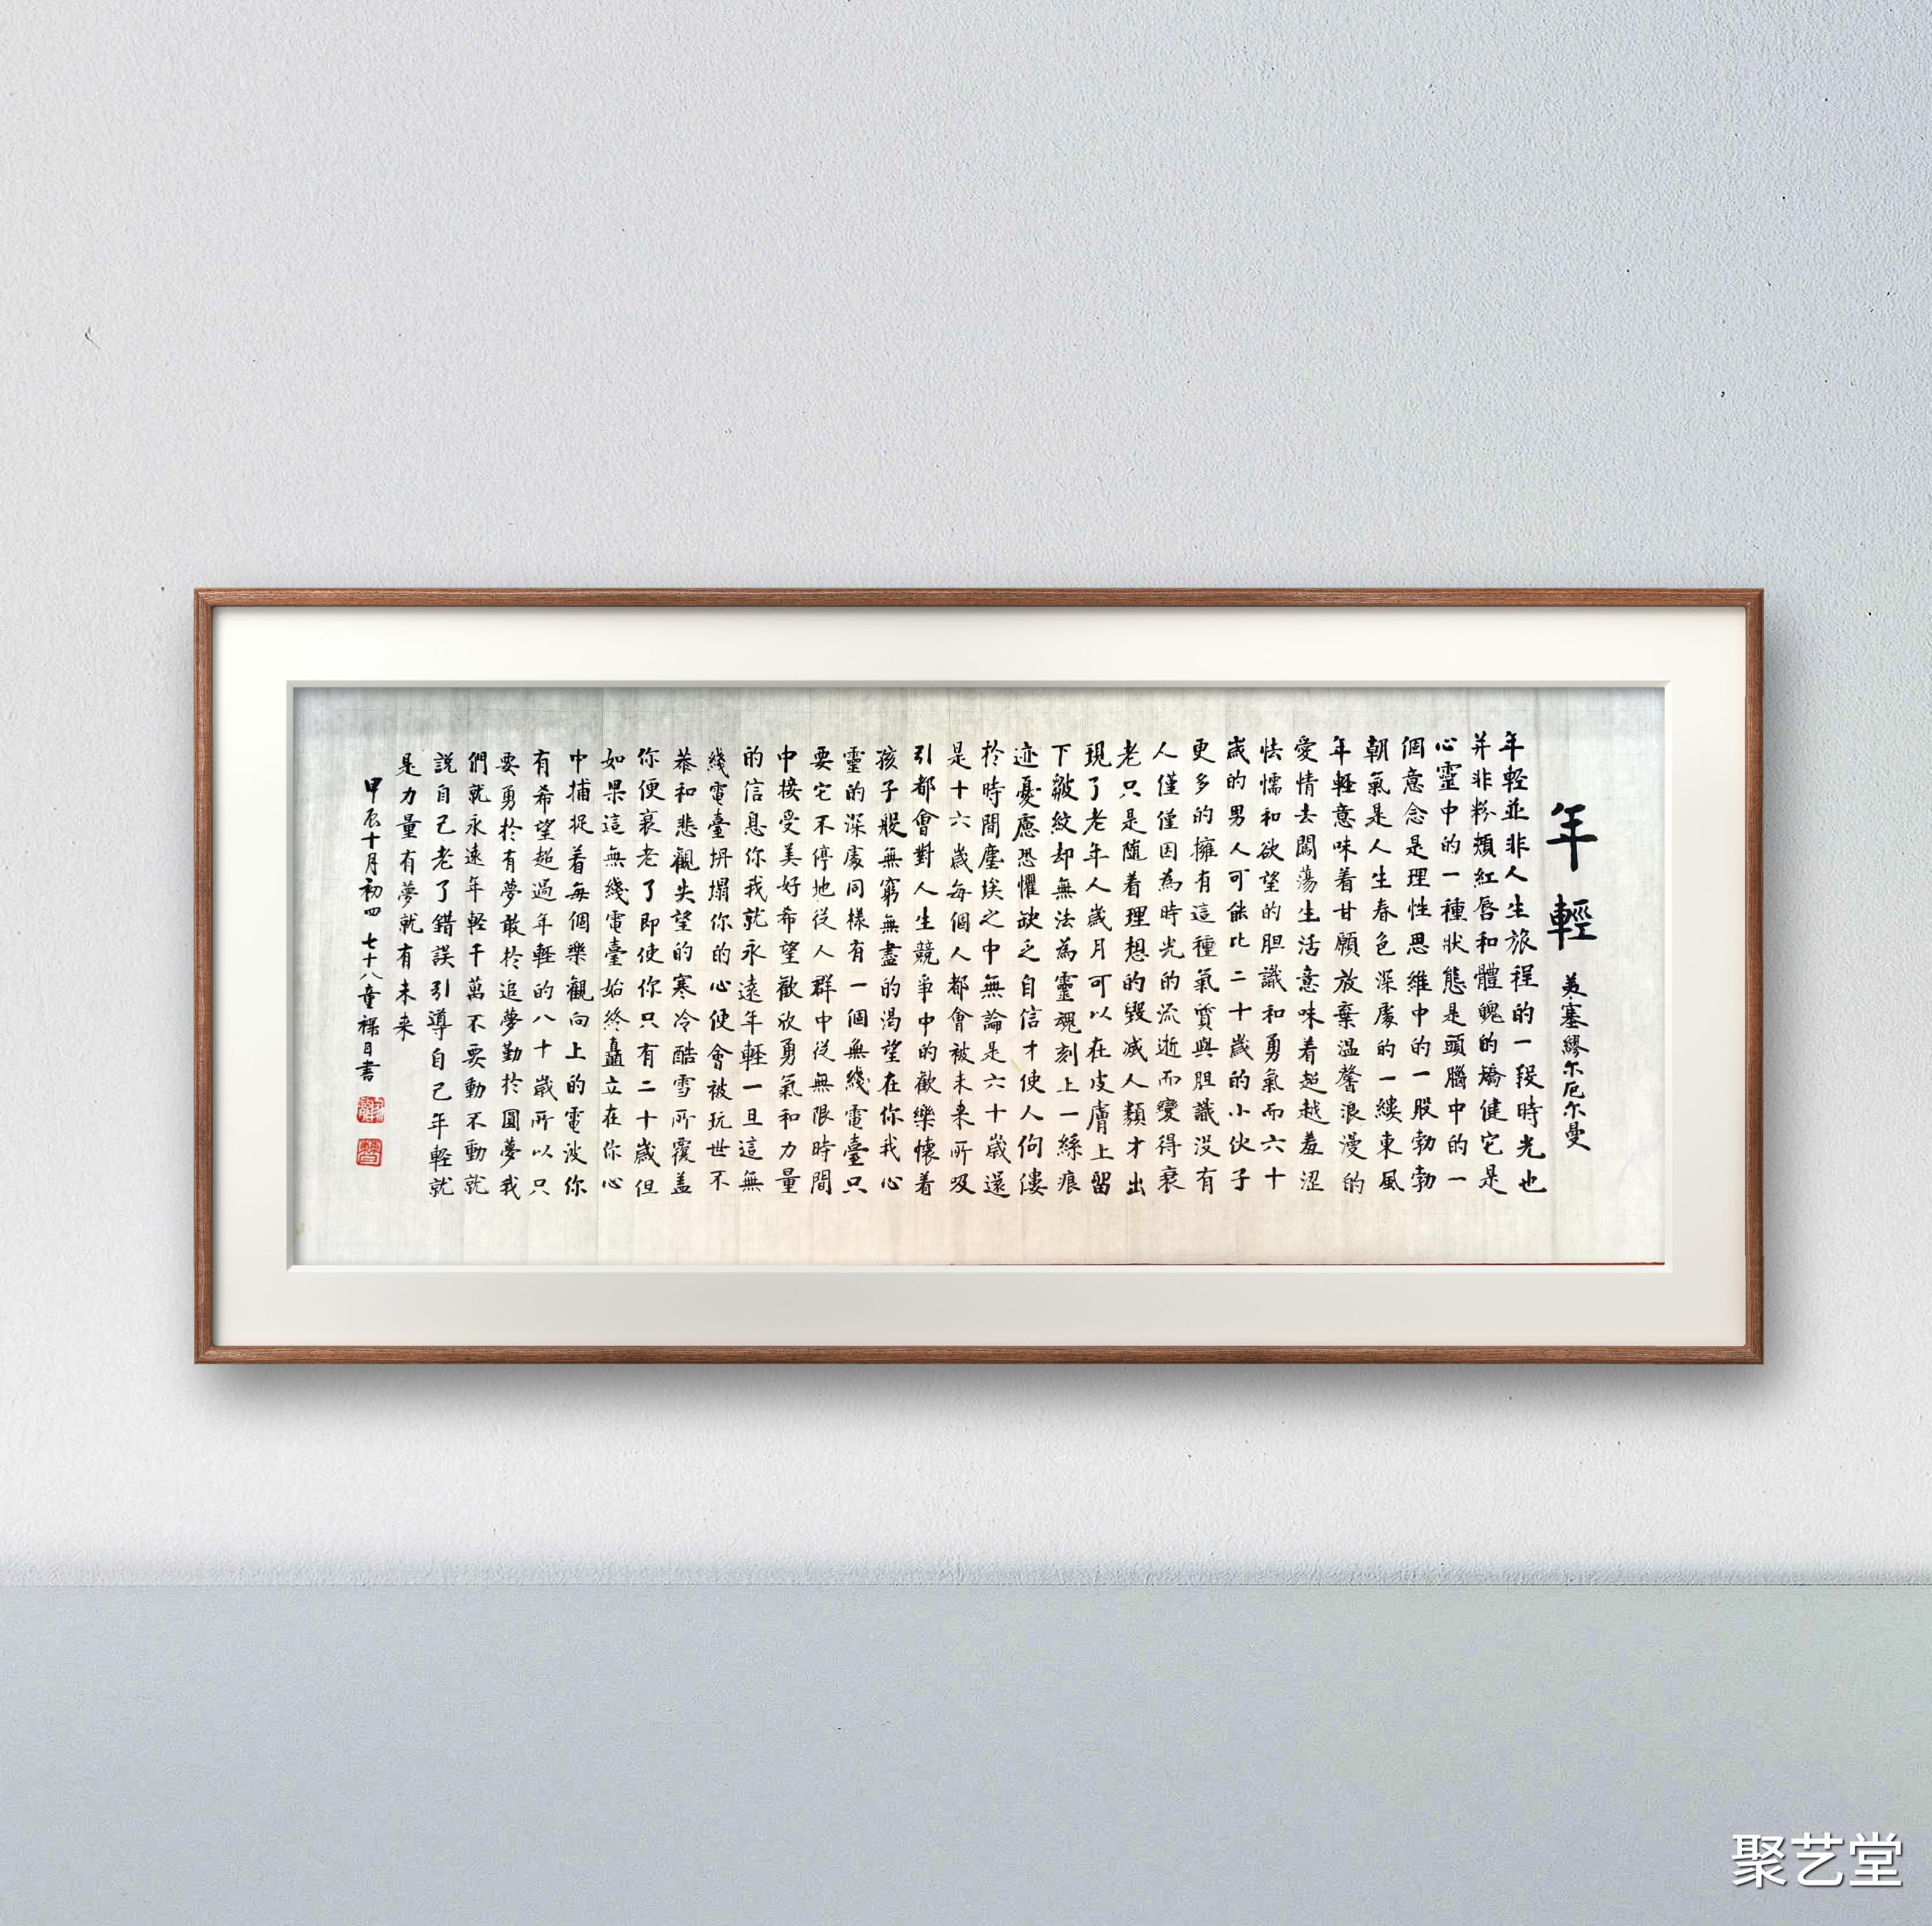 年輕
美塞繆尔厄尔曼
年輕並非人生旅程的一段時光也
并非粉頰紅唇和體魄的矯健它是
心靈中的一種狀態是頭腦中的一
個意念是理性思維中的一股勃勃
朝氣是人生春色深處的一縷東風
年輕意味着甘願放棄温馨浪漫的
愛情去闖蕩生活意味着超越羞涩
怯懦和欲望的胆識和勇氣而六十
歲的男人可能比二十歲的小伙子
更多的擁有這種氣質與胆識没有
人僅僅因為時光的流逝而變得衰
老只是随着理想的毁滅人類才出
現了老年人歲月可以在皮膚上留
下皺紋却無法為靈魂刻上一絲痕
迹憂慮恐懼缺乏自信才使人佝僂
於時間塵埃之中無論是六十歲還
是十六歲每個人都會被未来所吸
引都會對人生競爭中的歡樂懷着
孩子般無窮無盡的渴望在你我心
靈的深處同樣有一個無綫電臺只
要它不停地從人群中從無限時間
中接受美好希望歡欣勇氣和力量
的信息你我就永遠年輕一旦這無
綫電臺坍塌你的心便會被玩世不
恭和悲觀失望的寒冷酷雪所覆盖
你便衰老了即使你只有二十歲但
如果這無綫電臺始終矗立在你心
中捕捉着每個樂觀向上的電波你
有希望超過年輕的八十歲所以只
要勇於有夢敢於追夢勤於圓夢我
們就永遠年輕千萬不要動不動就
説自己老了錯誤引導自己年輕就
是力量有夢就有未来
甲辰十月初四 七十八童 日書
聚艺堂